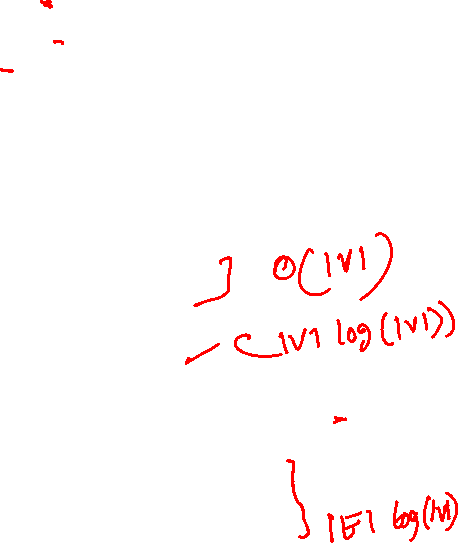 ] Θ(|V|)
(|V| log(|V|))
} |E| log(|V|)